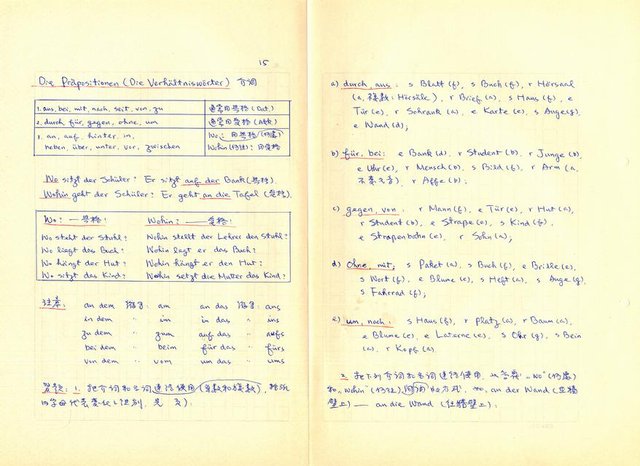 15
Die Präpositionen (Die Verhältniswörter) 介词
1. aus, bei, mit, nach, seit, von, zu 通常用与格 (Dat.)
2. durch, für, gegen, ohne, um 通常用受格 (Akk)
3. an, auf, hinter, in, Wo: 用与格 (何处)
neben, über, unter, vor, zwischen Wohin (何往): 用受格
Wo sitzt der Schüler? Er sitzt auf der Bank (与格).
Wohin geht der Schüler? Er geht an die Tafel (受格).
Wo: 与格! Wohin: 受格!
Wo steht der Stuhl? Wohin stellt der Lehrer den Stuhl?
Wo liegt das Buch? Wohin legt er das Buch?
Wo hängt der Hut? Wohin hängt er den Hut?
Wo sitzt das Kind? Wohin setzt die Mutter das Kind?
注意: an dem am an das ans
in dem " im in das " ins
zu dem " zum auf das " aufs
bei dem " beim für das " fürs
von dem " vom um das " ums
习题: 1. 把介词和名词连结使用 (单数和复数),
a) durch, aus: s Blatt (f), s Buch (f), r Hörsaal
(a, 复数: Hörsäle), r Brief (a), s Haus (f), e
Tür (e), r Schrank (a), e Karte (e), s Auge (g)
e Wand (d);
b) für, bei: e Bank (d), r Student (b), r Junge (b),
e Uhr (e), r Mensch (b), s Bild (f), r Arm (a,
r Affe (b);
c) gegen, von: r Mann (f), e Tür (e), r Hut (a),
r Student (b), e Straße (e), s Kind (f),
e Straßenbahn (e), r Sohn (a);
d) Ohne, mit: s Paket (a), s Buch (f), e Brille (e),
s Wort (f), e Blume (e), s Heft (a), s Auge (g)
s Fahrrad (f);
e) um, nach: s Haus (f), r Platz (a), r Baum (a),
e Blume (e), e Laterne (e), s Ohr (g), s Bein
(a), r Kopf (a)
2. 把下列介词和名词连结使用, "Wo" (何处)
和 "Wohin" (何往) an der Wand (在墙
壁上) — an die Wand (往墙壁上):